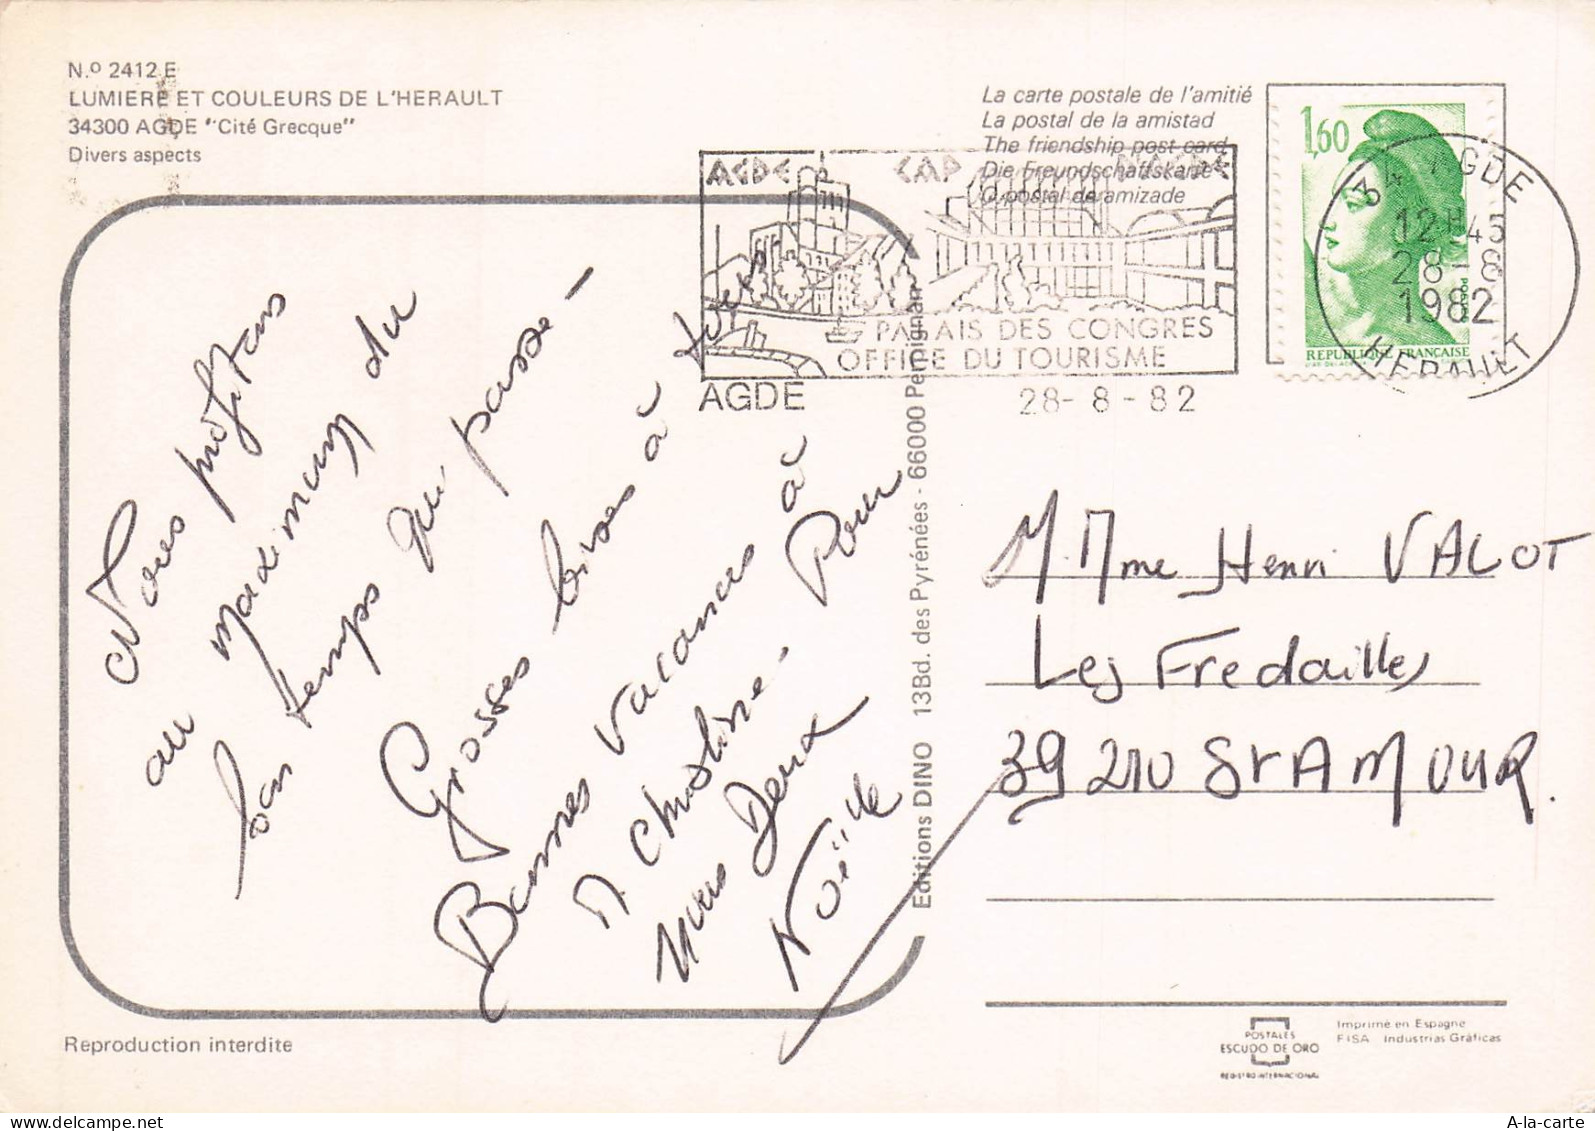 N.º 2412 E
LUMIERE ET COULEURS DE L'HERAULT
34300 AGDE "Cité Grecque"
Divers aspects
La carte postale de l'amitié
La postal de la amistad
The friendship post card
Die Freundschaftskarte
O postal de amizade
AGDE CAP D'AGDE
PALAIS DES CONGRES
OFFICE DU TOURISME
AGDE
28-8-82
1,60
POSTES
REPUBLIQUE FRANÇAISE
34 AGDE
12H45
28-8
1982
HERAULT
Nous profitons
au maximum du
bon temps qui passe -
Grosses bises à tous
Bonnes vacances à
M. Christine. Pour
nous Deux
Noëlle
Editions DINO 13Bd. des Pyrénées - 66000 Perpignan
M Mme Henri VALOT
Les Fredailles
39210 St AMOUR.
Reproduction interdite
POSTALES
ESCUDO DE ORO
REGISTRO INTERNACIONAL
Imprimé en Espagne
FISA Industrias Gráficas
A-la-carte